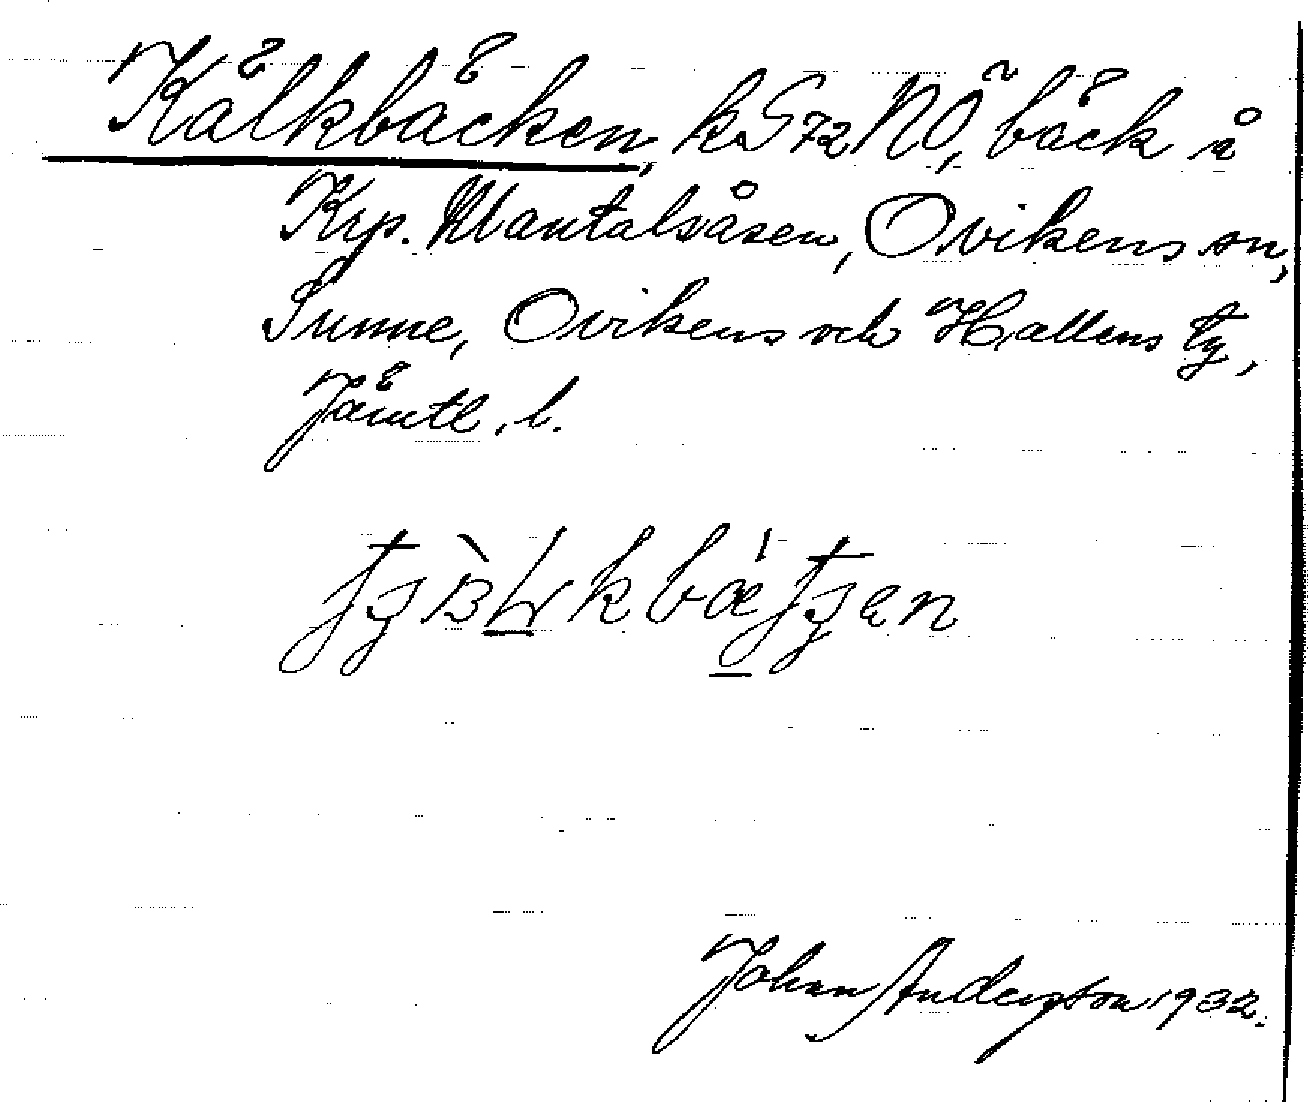 Kälkbäcken, k S 72 NÖ, bäck i
Krp. Mantalsåsen, Ovikens sn,
Sunne, Ovikens och Hallens tg,
Jämtl. l.
Johan Andersson 1932.